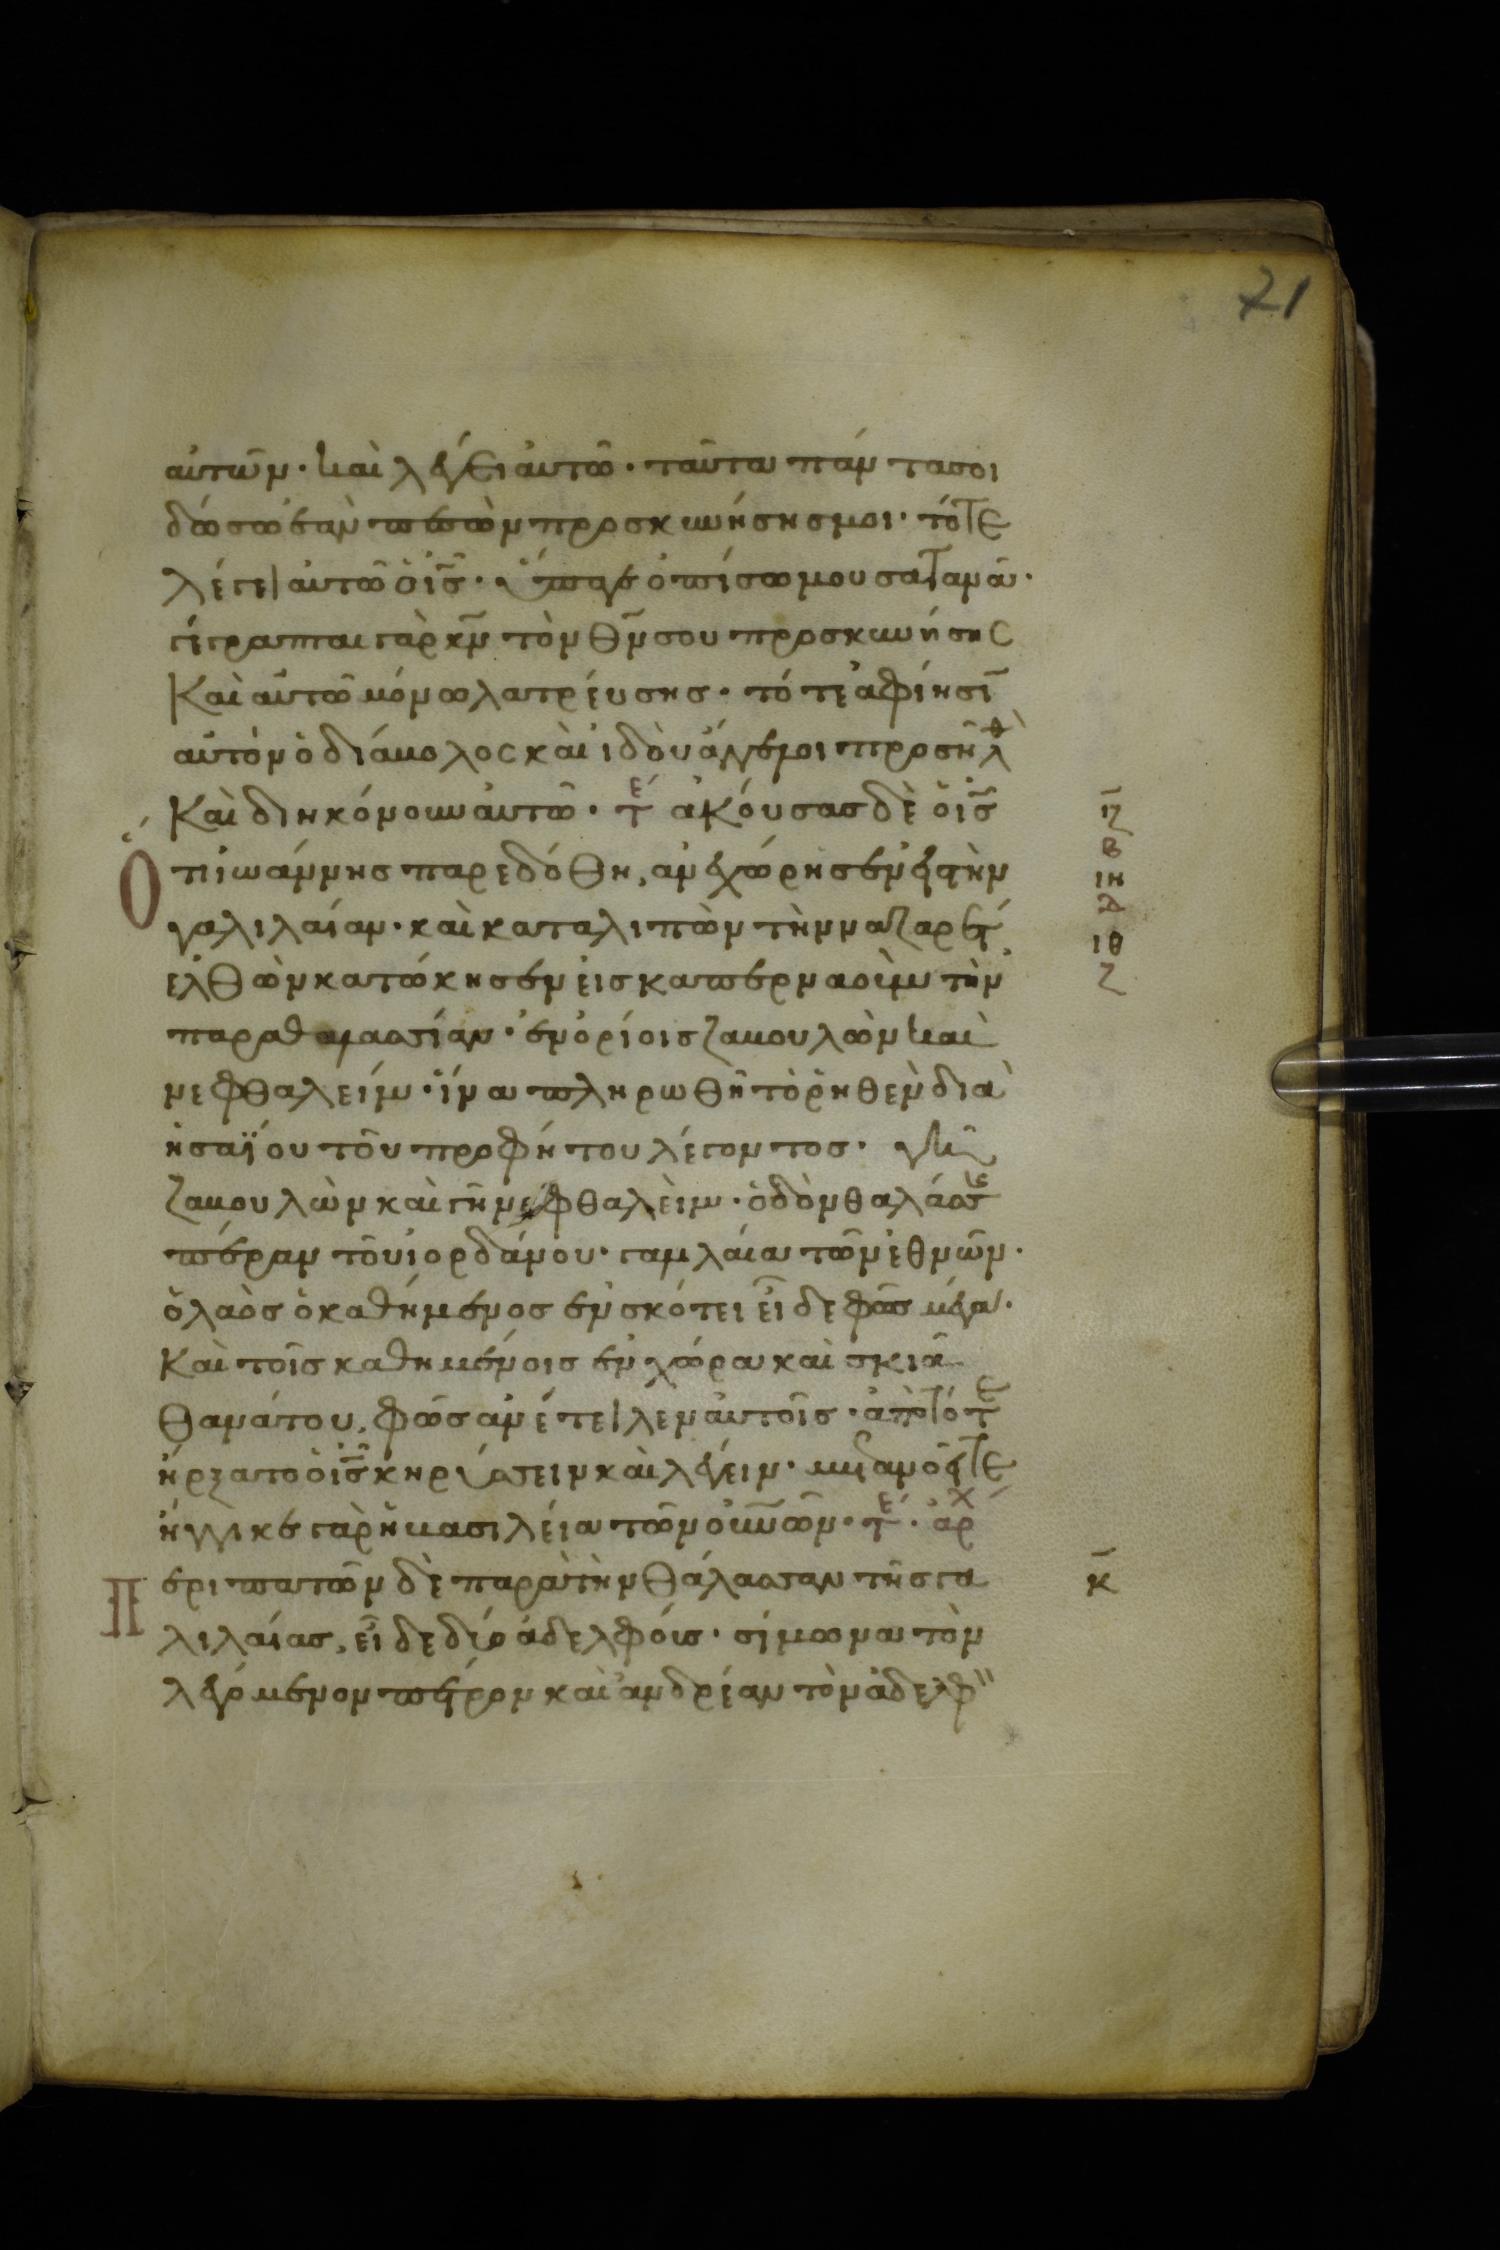 71
αὐτῶν · καὶ λέγει αὐτῶ · ταῦτα πάντα σοι
δώσω ἐὰν πεσὼν προσκυνήσης μοι · τότε
λέγει αὐτῶ ὁ ις · ὕπαγε ὀπίσω μου σατανᾶ ·
γέγραπται γὰρ κν τὸν θν σου προσκυνήσης
Καὶ αὐτῶ μόνω λατρεύσης · τότε ἀφίησῖ
αὐτὸν ὁ διάβολος καὶ ἰδοὺ ἄγγελοι προσῆλθ
Καὶ διηκόνουν αὐτῶ · τε ἀκούσας δὲ ὁ ις ιζ
Ὅτι ἰωάννης παρεδόθη, ἀνεχώρησεν εἰς τὴν β ιη
γαλιλαίαν · καὶ καταλιπὼν τὴν ναζαρέτ δ ιθ
ἐλθὼν κατώκησεν εἰς καπερναοὺμ τὴν ζ
παραθαλασσίαν · ἐν ὁρίοις ζαβουλὼν καὶ
νεφθαλείμ · ἵνα πληρωθῆ τὸ ῥηθὲν διὰ
ἡσαΐου τοῦ προφήτου λέγοντος · γῆ
ζαβουλὼν καὶ γῆ νεφθαλεὶμ · ὁδὸν θαλάσσης
πέραν τοῦ ἰορδάνου · γαλιλαία τῶν ἐθνῶν ·
ὁ λαὸς ὁ καθήμενος ἐν σκότει εἶδε φῶς μέγα ·
Καὶ τοῖς καθημένοις ἐν χώρα καὶ σκιᾶ
θανάτου, φῶς ἀνέτειλεν αὐτοῖς · ἀπὸ τότε
ἤρξατο ὁ ις κηρύσσειν καὶ λέγειν · μετανοεῖτε
ἤγγικε γὰρ ἡ βασιλεία τῶν οὐνῶν · τε · ἀρχ
Περιπατῶν δὲ παρὰ τὴν θάλασσαν τῆς γα κ
λιλαίας, εἶδε δύο ἀδελφούς · σίμωνα τὸν
λεγόμενον πέτρον καὶ ἀνδρέαν τὸν ἀδελφ